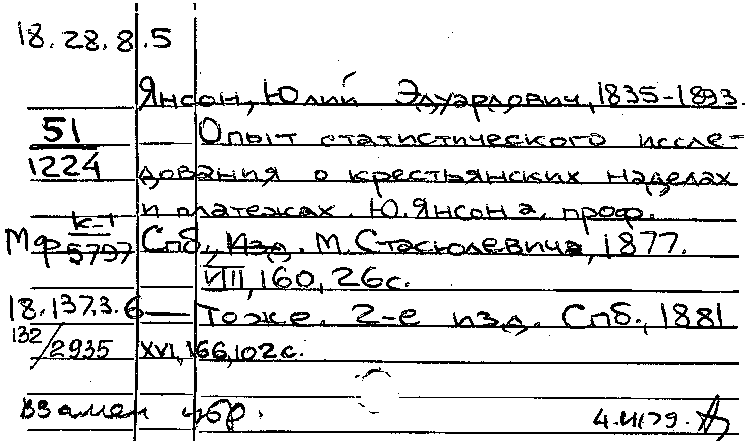 18.28.8.5
Янсон, Юлий Эдуардович, 1835-1893.
51 Опыт статистического иссле-
1224 дования о крестьянских наделах
и платежах. Ю. Янсона, проф.
Мф К-1/5797 Спб., Изд. М. Стасюлевича, 1877.
VIII, 160, 26 с.
18.137.3.6 — Тоже. 2-е изд. Спб., 1881
132/2935 XVI, 166, 102 с.
Взамен